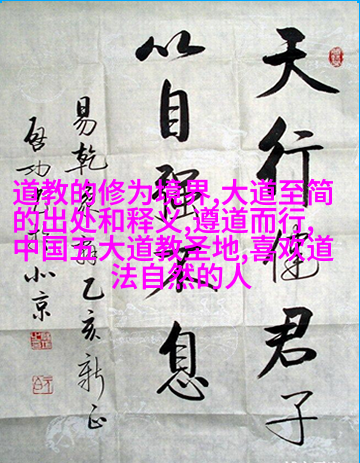 天行健君子
以自强不息
易乾乙亥新正
启功北京
道教的修为境界,大道至简
的出处和释义,遵道而行,
中国五大道教圣地,喜欢道
法自然的人